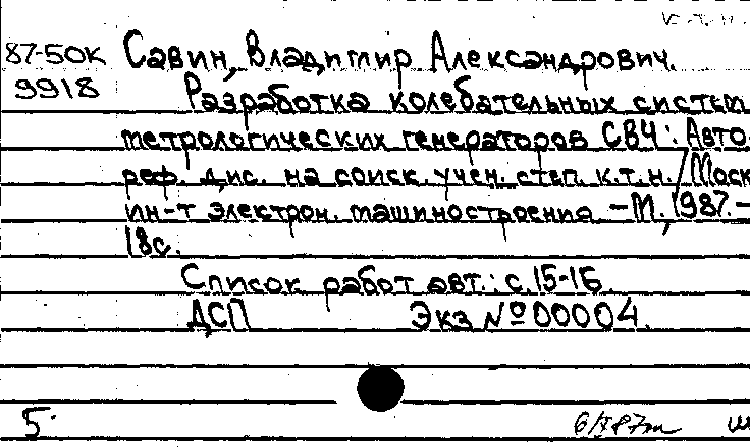 87-50К Савин, Владимир Александрович.
9918 Разработка колебательных систем
метрологических генераторов СВЧ: Авто-
реф. дис. на соиск. учен. степ. к.т.н. / Моск
ин-т электрон. машиностроения - М., 1987. -
18с.
Список работ авт.: с. 15-16.
ДСП Экз № 00004.
5.